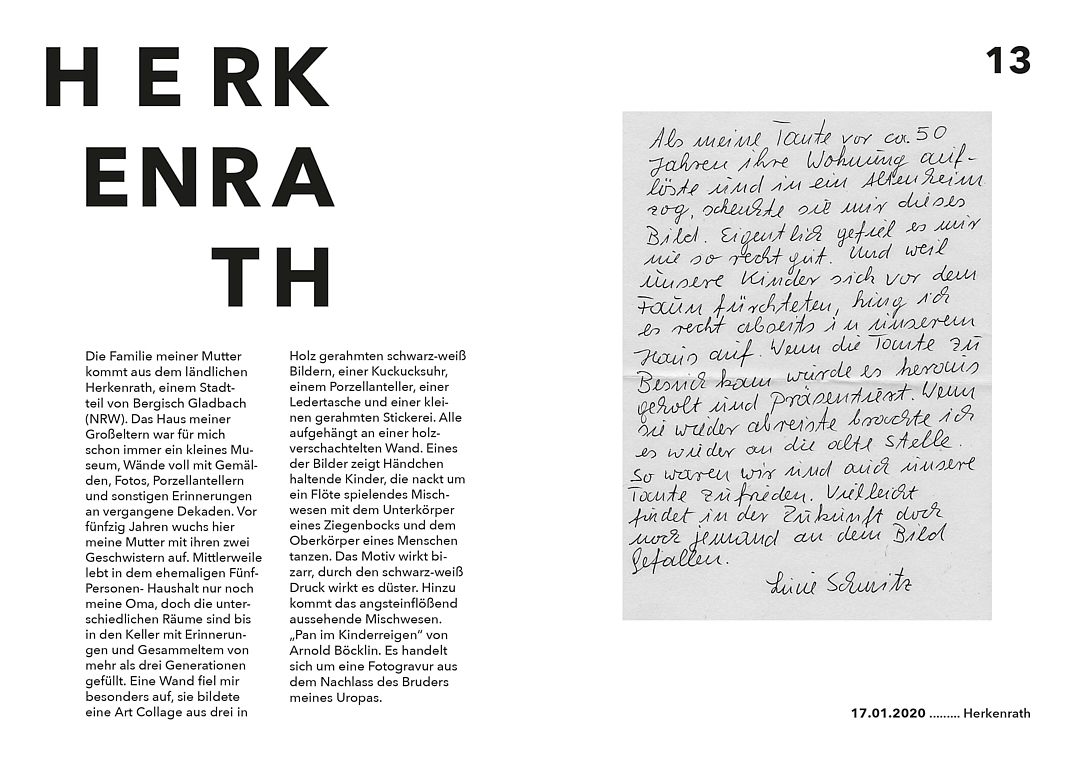 HERK
ENRA
TH
Die Familie meiner Mutter
kommt aus dem ländlichen
Herkenrath, einem Stadt-
teil von Bergisch Gladbach
(NRW). Das Haus meiner
Großeltern war für mich
schon immer ein kleines Mu-
seum, Wände voll mit Gemäl-
den, Fotos, Porzellantellern
und sonstigen Erinnerungen
an vergangene Dekaden. Vor
fünfzig Jahren wuchs hier
meine Mutter mit ihren zwei
Geschwistern auf. Mittlerweile
lebt in dem ehemaligen Fünf-
Personen- Haushalt nur noch
meine Oma, doch die unter-
schiedlichen Räume sind bis
in den Keller mit Erinnerun-
gen und Gesammeltem von
mehr als drei Generationen
gefüllt. Eine Wand fiel mir
besonders auf, sie bildete
eine Art Collage aus drei in
Holz gerahmten schwarz-weiß
Bildern, einer Kuckucksuhr,
einem Porzellanteller, einer
Ledertasche und einer klei-
nen gerahmten Stickerei. Alle
aufgehängt an einer holz-
verschachtelten Wand. Eines
der Bilder zeigt Händchen
haltende Kinder, die nackt um
ein Flöte spielendes Misch-
wesen mit dem Unterkörper
eines Ziegenbocks und dem
Oberkörper eines Menschen
tanzen. Das Motiv wirkt bi-
zarr, durch den schwarz-weiß
Druck wirkt es düster. Hinzu
kommt das angsteinflößend
aussehende Mischwesen.
„Pan im Kinderreigen“ von
Arnold Böcklin. Es handelt
sich um eine Fotogravur aus
dem Nachlass des Bruders
meines Uropas.
13
Als meine Tante vor ca. 50
Jahren ihre Wohnung auf-
löste und in ein Altenheim
zog, schenkte sie mir dieses
Bild. Eigentlich gefiel es mir
nie so recht gut. Und weil
unsere Kinder sich vor dem
Faun fürchteten, hing ich
es recht abseits in unserem
Haus auf. Wenn die Tante zu
Besuch kam wurde es heraus
geholt und präsentiert. Wenn
sie wieder abreiste brachte ich
es wieder an die alte Stelle.
So waren wir und auch unsere
Tante zufrieden. Vielleicht
findet in der Zukunft doch
noch jemand an dem Bild
Gefallen.
Schmitz
17.01.2020 ......... Herkenrath